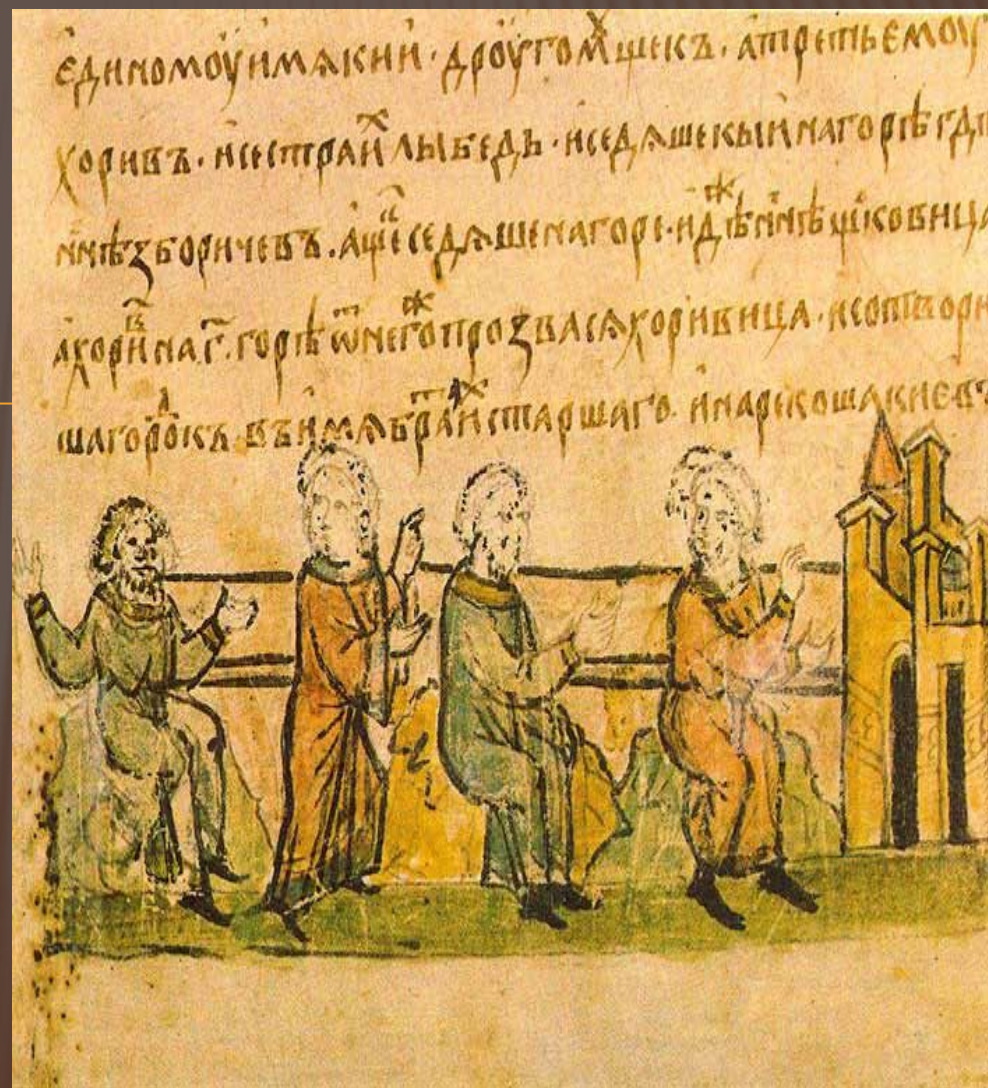 единомоу имѧ кии · дроугомⷹ щекъ · а третьемоу
хоривъ · и сестра иⷯ лыбедь · и седѧше кыи на горѣ гдѣ
ннѣ зборичевъ · а щеⷦ седѧше на горе · идѣⷤ ннѣ щковица
а хориⷡ на г҃ · горѣ ѿ негоⷤ прозвасѧ хоривица · и сотвори
ша гороⷣкъ · въ имѧ браⷮ иⷯ старшаго · и нарекоша киевъ